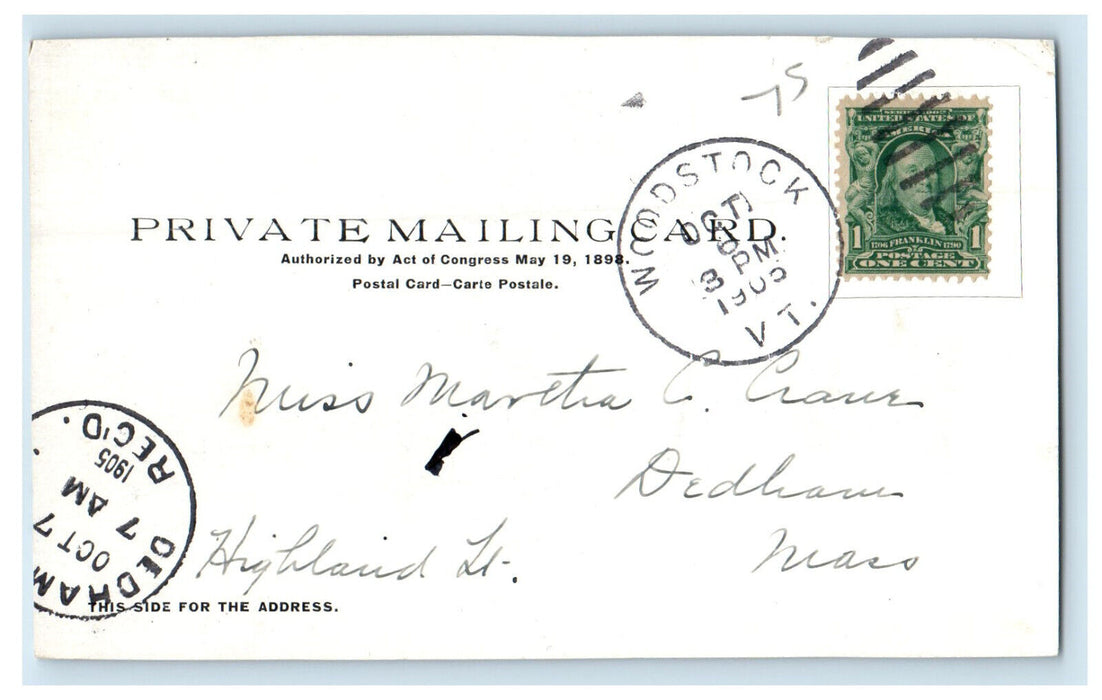 75
SERIES 1902
UNITED STATES OF
AMERICA
1 1706 FRANKLIN 1790 1
POSTAGE
ONE CENT
WOODSTOCK
OCT
6
3 PM
1905
VT.
PRIVATE MAILING CARD.
Authorized by Act of Congress May 19, 1898.
Postal Card—Carte Postale.
Miss Martha C. Crane
Dedham
Mass
Highland St.
DEDHAM
OCT 7
7 AM
1905
REC'D.
THIS SIDE FOR THE ADDRESS.